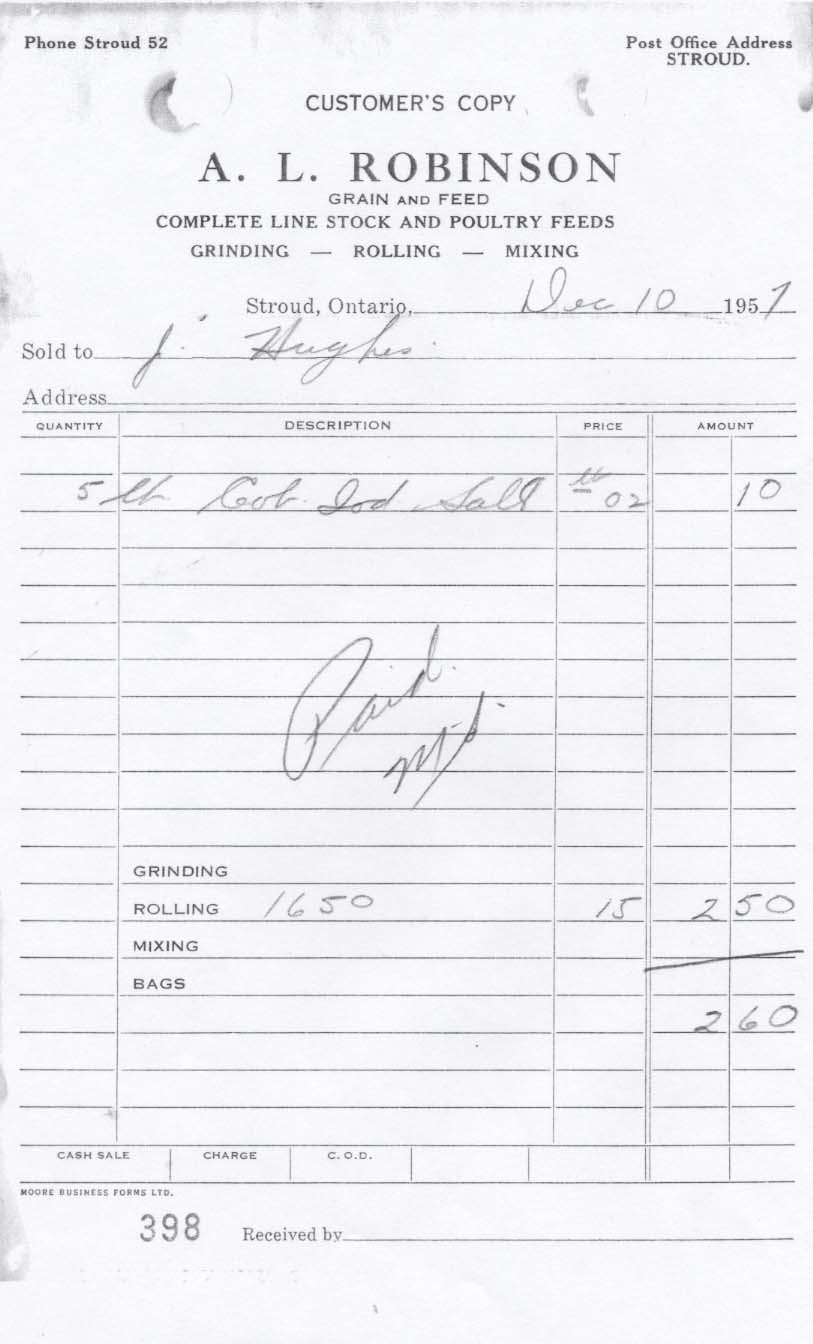 Phone Stroud 52
Post Office Address
STROUD.
CUSTOMER'S COPY
A. L. ROBINSON
GRAIN AND FEED
COMPLETE LINE STOCK AND POULTRY FEEDS
GRINDING — ROLLING — MIXING
Stroud, Ontario, Dec 10 1957
Sold to J. Hughes
Address
QUANTITY DESCRIPTION PRICE AMOUNT
5 lb. Cob. Iod Salt 02 10
Paid.
GRINDING
ROLLING 1650 15 2 50
MIXING
BAGS
2 60
CASH SALE CHARGE C.O.D.
MOORE BUSINESS FORMS LTD.
398 Received by